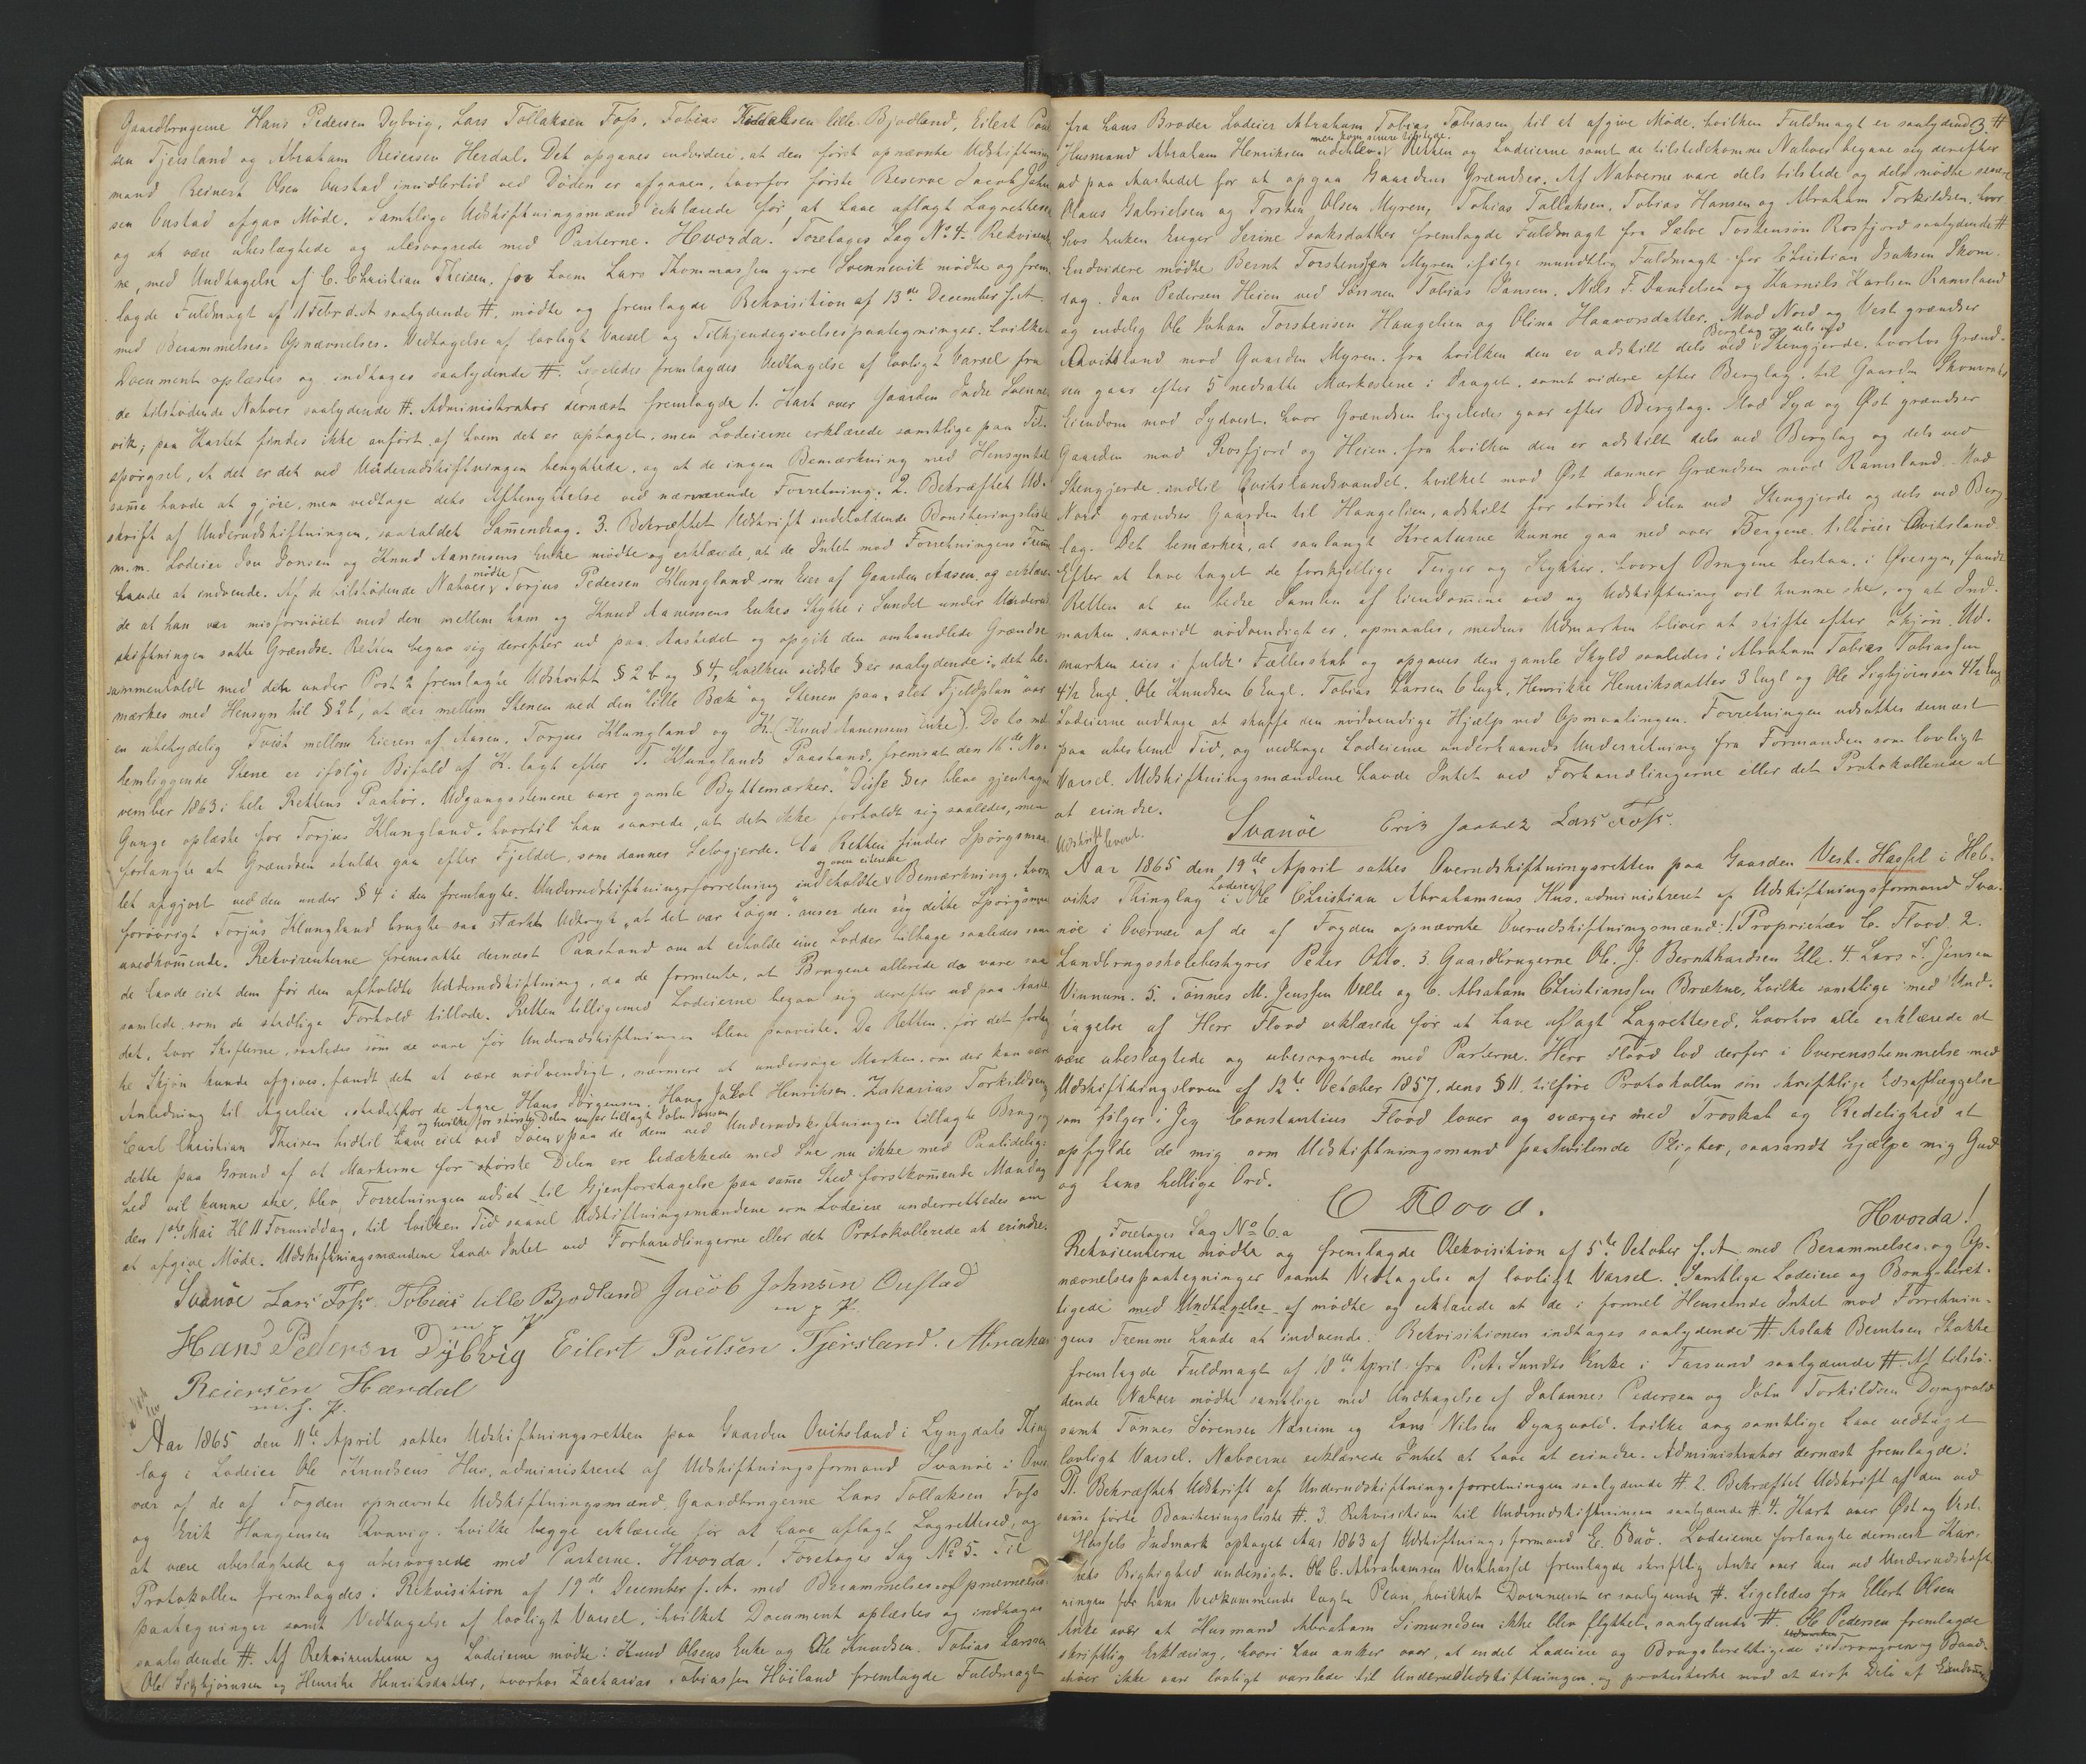 Gaardbrugerne Hans Pedersen Dybvig, Lars Tollaksen Foss, Tobias lille Bjodland, Eilert Poul
sen Tjersland og Abraham Reiersen Herdal. Det opgaves endvidere, at den först opnævnte Udskiftnings
mand Reinert Olsen Oustad imidlertid ved Döden er afgaaen, hvorfor förste Reserve Jacob John
sen Oustad afgav Möde. Samtlige Udskiftningsmænd erklærede för at have aflagt Lagrettesed
og at være ubeslægtede og ubesvogrede med Parterne. Hvorda! Foretages Sag No 4. Rekvirenter
ne, med Undtagelse af C. Christian Theisen, for hvem Lars Thommassen ytre Svennevik mödte og frem
lagde Fuldmagt af 11 Febr d. A saalydende #, mödte og fremlagde Rekvisition af 13de December f. A.
med Berammelses- Opnævnelses- Vedtagelse af lovligt Varsel og Tilkjendegivelsespaategninger, hvilket
Document oplæstes og indtages saalydende #. Ligeledes fremlagdes Vedtagelse af lovligt Varsel fra
de tilstödende Naboer saalydende #. Administrator dernæst fremlagde 1. Kart over Gaarden Indre Svenne
vik; paa Kartet findes ikke anfört af hvem det er optaget, men Lodeierne erklærede samtlige paa Til-
spörgsel, at det er det ved Underudskiftningen benyttede, og at de ingen Bemærkning med Hensyn til
samme havde at gjöre, men vedtage dets Afbenyttelse ved nærværende Forretning. 2. Bekræftet Ud-
skrift af Underudskiftningen, saakaldet Sammendrag. 3. Bekræftet Udskrift indeholdende Boniteringsliste
m.m. Lodeier Jon Jonsen og Knud Aanensens Enke mödte og erklærede, at de Intet mod Forretningens Fremme
havde at indvende. Af de tilstödende Naboer mödte Torjus Pedersen Klungland som Eier af Gaarden Aasen og erklære
de at han var misfornöiet med den mellem ham og Knud Aanensens Enkes Stykke i Sundet under Underud
skiftningen satte Grændse. Retten begav sig derefter ud paa Aastedet og opgik den omhandlede Grændse
sammenholdt med den under Post 2 fremlagte Udskrift § 2 b og § 4, hvilken sidste § er saalydende: "det be
mærkes med Hensyn til § 2 b, at der mellem Stenen ved den "lille Bæk" og Stenen paa "slet Fjeldplan" var
en ubetydelig Tvist mellem Eieren af Aasen, Torjus Klungland og K. (Knud Aanensens Enke). De to mel
lemliggende Stene er ifölge Bifald af K. lagt efter T. Klunglands Paastand, fremsat den 16de No-
vember 1863 i hele Rettens Paahör. Udgangsstenene vare gamle Byttemærker." Disse §er bleve gjentagne
Gange oplæste for Torjus Klungland, hvortil han svarede, at det ikke forholdt sig saaledes, men
forlangte at Grændsen skulde gaa efter Fjeldet, som dannes Selvgjerde. Da Retten finder Spörgsmaa
let afgjort ved den under § 4 i den fremlagte Underudskiftningsforretning indeholdte Bemærkning, hvor
forövrigt Torjus Klungland brugte saa stærkt Udtryk "at det var Lögn" anser den sig dette Spörgsmaal
uvedkommende. Rekvirenterne fremsatte dernæst Paastand om at erholde sine Lodder tilbage saaledes som
de havde eiet dem för den afholdte Underudskiftning, da de formente, at Brugene allerede da vare saa
samlede som de stedlige Forhold tillode. Retten tilligemed Lodeierne begav sig derefter ud paa Aaste
det, hvor Skifterne, saaledes som de vare för Underudskiftningen bleve paaviste. Da Retten, för det forlang
te Skjön kunde afgives, fandt det at være nödvendigt, nærmere at undersöge Marken, om der kan være
Anledning til Agerleie istedetfor de Agre Hans Jörgensen, Hans Jakob Henriksen, Zakarias Torkildsen
og hvilke for störste Delen ere tillagt John Jonsen
Carl Christian Theisen hidtil have eiet ved Söen paa de dem ved Underudskiftningen tillagte Brug, og
dette paa Grund af at Markerne for störste Delen ere bedækkede med Sne nu ikke med Paalidelig-
hed vil kunne ske, blev Forretningen udsat til Gjenforetagelse paa samme Sted förstkommende Mandag
den 1ste Mai Kl 11 Formiddag, til hvilken Tid saavel Udskiftningsmændene som Lodeiere underrettedes om
at afgive Möde. Udskiftningsmændene havde Intet ved Forhandlingerne eller det Protokollerede at erindre.
Svanöe Lars Foss Tobias lille Bjodland Jacob Johnsen Oustad
m f P. m f P.
Hans Pedersen Dybvig Eilert Poulsen Tjersland. Abraham
Reiersen Hærdal
m. f. P.
Aar 1865 den 11te April sattes Udskiftningsretten paa Gaarden Qvitsland i Lyngdals Thing
lag i Lodeier Ole Knudsens Hus, administreret af Udskiftningsformand Svanöe i Over
vær af de af Fogden opnævnte Udskiftningsmænd, Gaardbrugerne Lars Tollaksen Foss
og Erik Haagensen Kvavig, hvilke begge erklærede för at have aflagt Lagrettesed, og
at være ubeslægtede og ubesvogrede med Parterne. Hvorda! Foretages Sag No 5. Til
Protokollen fremlagdes: Rekvisition af 19de December f. A. med Berammelses og Opnævnelses
paategninger samt Vedtagelse af lovligt Varsel, hvilket Document oplæstes og indtages
saalydende #. Af Rekvirenterne og Lodeierne mödte: Knud Olsens Enke og Ole Knudsen, Tobias Larssen
Ole Sigbjörnsen og Henrikke Henriksdatter, hvorhos Zacharias Tobiassen Höiland fremlagde Fuldmagt
3.
fra hans Broder Lodeier Abraham Tobias Tobiasen til at afgive Möde, hvilken Fuldmagt er saalydende #
men kom senere tilstede.
Husmand Abraham Henriksen udeblev. Retten og Lodeierne samt de tilstedekomne Naboer begave sig derefter
ud paa Aastedet for at opgaa Gaardens Grændser. Af Naboerne vare dels tilstede og dels mödte senere
Olaus Gabrielsen og Torsten Olsen Myren, Tobias Tallaksen, Tobias Hansen og Abraham Torkildsen, hvor
hos Enken Inger Serine Isaksdatter fremlagde Fuldmagt fra Salve Tostensön Rosfjord saalydende #
Endvidere mödte Bernt Torstensen Myren ifölge mundtlig Fuldmagt for Christian Isaksen Skom
rag, Jan Pedersen Heien ved Sönnen Tobias Jansen, Nils F. Danielsen og Karnils Karlsen Ramsland
og endelig Ole Johan Torstensen Haugelien og Olina Haavorsdatter. Mod Nord og Vest grændser
Berglag og dels ved
Qvitsland mod Gaarden Myren, fra hvilken den er adskilt dels ved Stengjerde, hvorhos Grænd-
sen gaar efter 5 nedsatte Markestene i Draget, samt videre efter Berglag, til Gaarden Skomrags
Eiendom mod Sydvest, hvor Grændsen ligeledes gaar efter Berglag. Mod Syd og Øst grændser
Gaarden mod Rosfjord og Heien, fra hvilken den er adskilt dels ved Berglag og dels ved
Stengjerde indtil Qvitslandsvandet, hvilket mod Øst danner Grændsen mod Ramsland. Mod
Nord grændser Gaarden til Haugelien, adskilt for störste Delen ved Stengjerde og dels ved Berg-
lag. Det bemærkes, at saalangt Kreaturene kunne gaa ned over Bergene, tilhörer Qvitsland.
Efter at have taget de forskjellige Teiger og Stykker, hvoraf Brugene bestaa, i Öiesyn, fandt
Retten at en bedre Samlen af Eiendommene ved ny Udskiftning vil kunne ske, og at Ind-
marken, saavidt nödvendigt er, opmaales, medens Udmarken bliver at skifte efter Skjön. Ud-
marken eies i fuldt Fællesskab og opgaves den gamle Skyld saaledes: Abraham Tobias Tobiassen
4½ Engl, Ole Knudsen 6 Engl. Tobias Larsen 6 Engl, Henrikke Henriksdatter 3 Engl og Ole Sigbjörnsen 4½ Engl
Lodeierne vedtoge at skaffe den nödvendige Hjælp ved Opmaalingen. Forretningen udsattes dernæst
paa ubestemt Tid, og vedtoge Lodeierne underhaands Underretning fra Formanden som lovligt
Varsel. Udskiftningsmændene havde Intet ved Forhandlingerne eller det Protokollerede at
at erindre.
Svanöe Lars Foss.
Udskrift leveret.
Aar 1865 den 19de April sattes Overudskiftningsretten paa Gaarden Vest-Hassel i Heb-
viks Thinglag i Lodeier Ole Christian Abrahamsens Hus, administreret af Udskiftningsformand Sva-
nöe i Overvær af de af Fogden opnævnte Overudskiftningsmænd: 1. Proprietær C. Flood 2.
Landbrugsskolebestyrer Peter Otto. 3. Gaardbrugerne Ole J. Bernthardsen Elle. 4. Lars L. Jensen
Vinnum. 5. Tönnes M. Jenssen Velle og 6. Abraham Christianssen Brækne, hvilke samtlige med Und-
tagelse af Herr Flood erklærede för at have aflagt Lagrettesed, hvorhos alle erklærede at
være ubeslægtede og ubesvogrede med Parterne. Herr Flood lod derfor i Overensstemmelse med
Udskiftningsloven af 12te October 1857, dens § 11, tilföre Protokollen sin skriftlige Edsaflæggelse
som fölger: Jeg Constantius Flood lover og sværger med Troskab og Redelighed at
opfylde de mig som Udskiftningsmand paahvilende Pligter, saasandt hjælpe mig Gud
og hans hellige Ord.
C Flood.
Hvorda!
Foretages Sag No 6. a
Rekvirenterne mödte og fremlagde Rekvisition af 5te October f. A med Berammelses- og Op-
nævnelsespaategninger samt Vedtagelse af lovligt Varsel. Samtlige Lodeiere og Brugsberet-
tigede med Undtagelse af mödte og erklærede at de i formel Henseende Intet mod Forretnin-
gens Fremme havde at indvende. Rekvisitionen indtages saalydende #. Aslak Berntsen Stokke
fremlagde Fuldmagt af 18de April fra P. A. Lundts Enke i Farsund saalydende #. Af tilstö-
dende Naboer mödte samtlige med Undtagelse af Johannes Pedersen og John Torkildsen Dyngvold
samt Tönnes Sörensen Næseim og Lars Nilsen Dyngvold, hvilke dog samtlige have vedtaget
lovligt Varsel. Naboerne erklærede Intet at have at erindre. Administrator dernæst fremlagde:
1. Bekræftet Udskrift af Underudskiftningsforretningen saalydende #. 2. Bekræftet Udskrift af den ved
samme förte Boniteringsliste #. 3. Rekvisition til Underudskiftningen saalydende # 4. Kart over Øst og Vest
Hassels Indmark optaget Aar 1863 af Udskiftningsformand E. Boö. Lodeierne forlangte dernæst Kar-
tets Rigtighed undersögt. Ole C. Abrahamsen Vesthassel fremlagde skriftlig Anke over den ved Underudskift-
ningen for hans Vedkommende lagte Plan, hvilket Document er saalydende #. Ligeledes fra Ellert Olsen
Anke over at Husmand Abraham Simundsen ikke blev flyttet, saalydende #. Ole Pedersen fremlagde
skriftlig Erklæring, hvori han anker over, at endel Lodeiere og Brugsberettigede i
ikke vare lovligt varslede til Underudskiftningen, og protesterte mod at disse Dele af Eiendommen